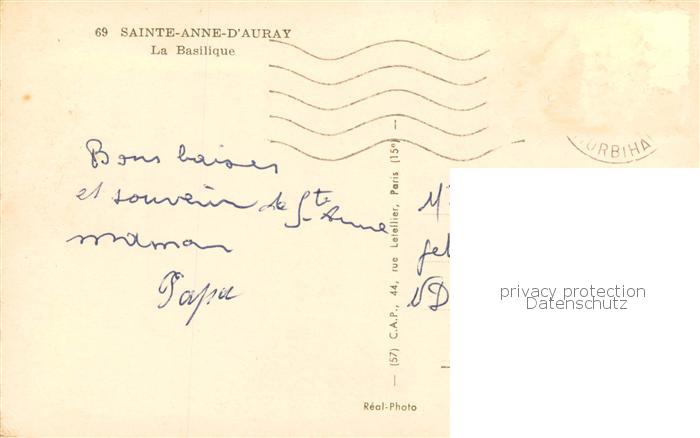 69 SAINTE-ANNE-D'AURAY
La Basilique
Bons baisers
et souvenir de Ste Anne
maman
Papa
— (57) C.A.P., 44, rue Letellier, Paris (15e) —
Réal-Photo
ORBIHA
privacy protection
Datenschutz